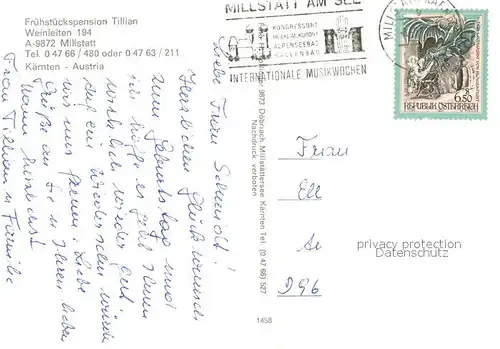 Frühstückspension Tillian
Weinleiten 194
A-9872 Millstatt
Tel. 0 47 66 / 480 oder 0 47 63 / 211
Kärnten - Austria
MILLSTATT AM SEE
KONGRESSORT
HEILKLIMAKURORT
ALPENSEEBAD
HALLENBAD
INTERNATIONALE MUSIKWOCHEN
S
6.50
REPUBLIK ÖSTERREICH
Liebe Frau Schmidt!
Herzlichen Glückwunsch
zum Geburtstag und
ich hoffe es geht Ihnen
wirklich wieder gut.
auf ein Wiedersehen würden
wir uns freuen. Liebe
Grüße an Sie u Ihren lieben
Frau Tillian u Familie
9873 Döbriach Millstättersee Kärnten Tel. (0 47 66) 527
Nachdruck verboten
Frau
Ell
996
privacy protection
Datenschutz
1458